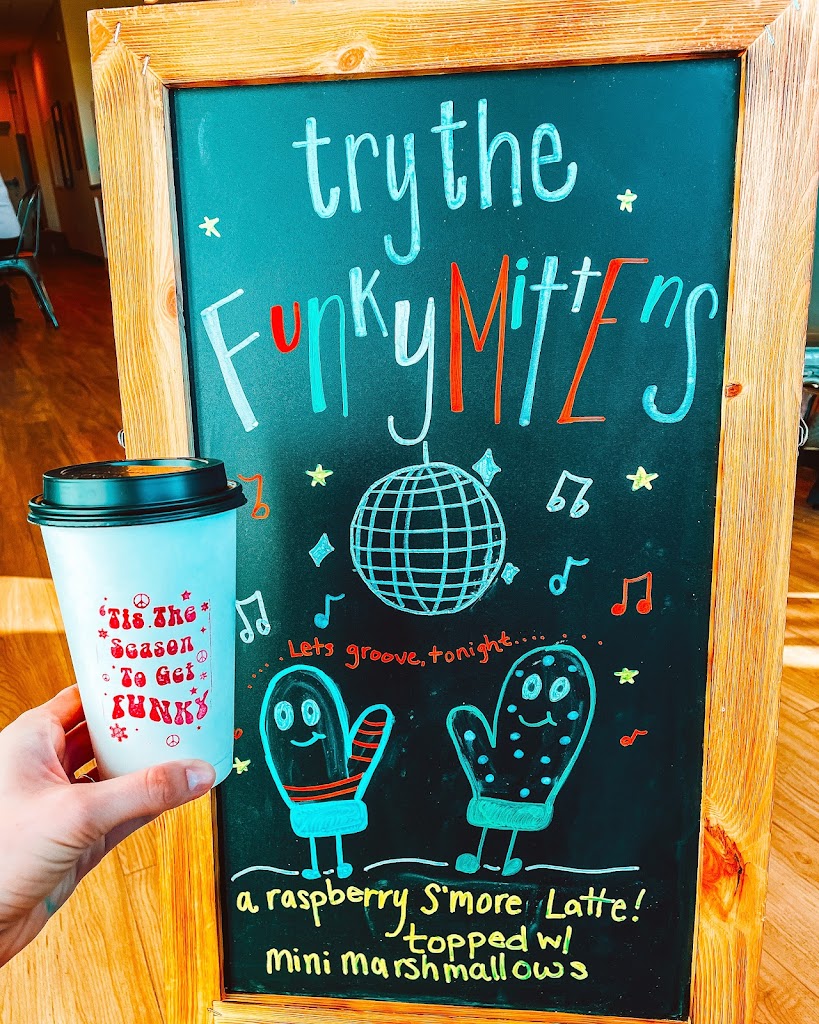 try the
Funky Mittens
Lets groove, tonight....
a raspberry S'more Latte!
topped w/
mini marshmallows
'Tis The
Season
To Get
FUNKY